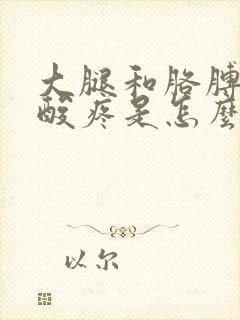 大腿和胳膊
酸疼是怎麼
以尔